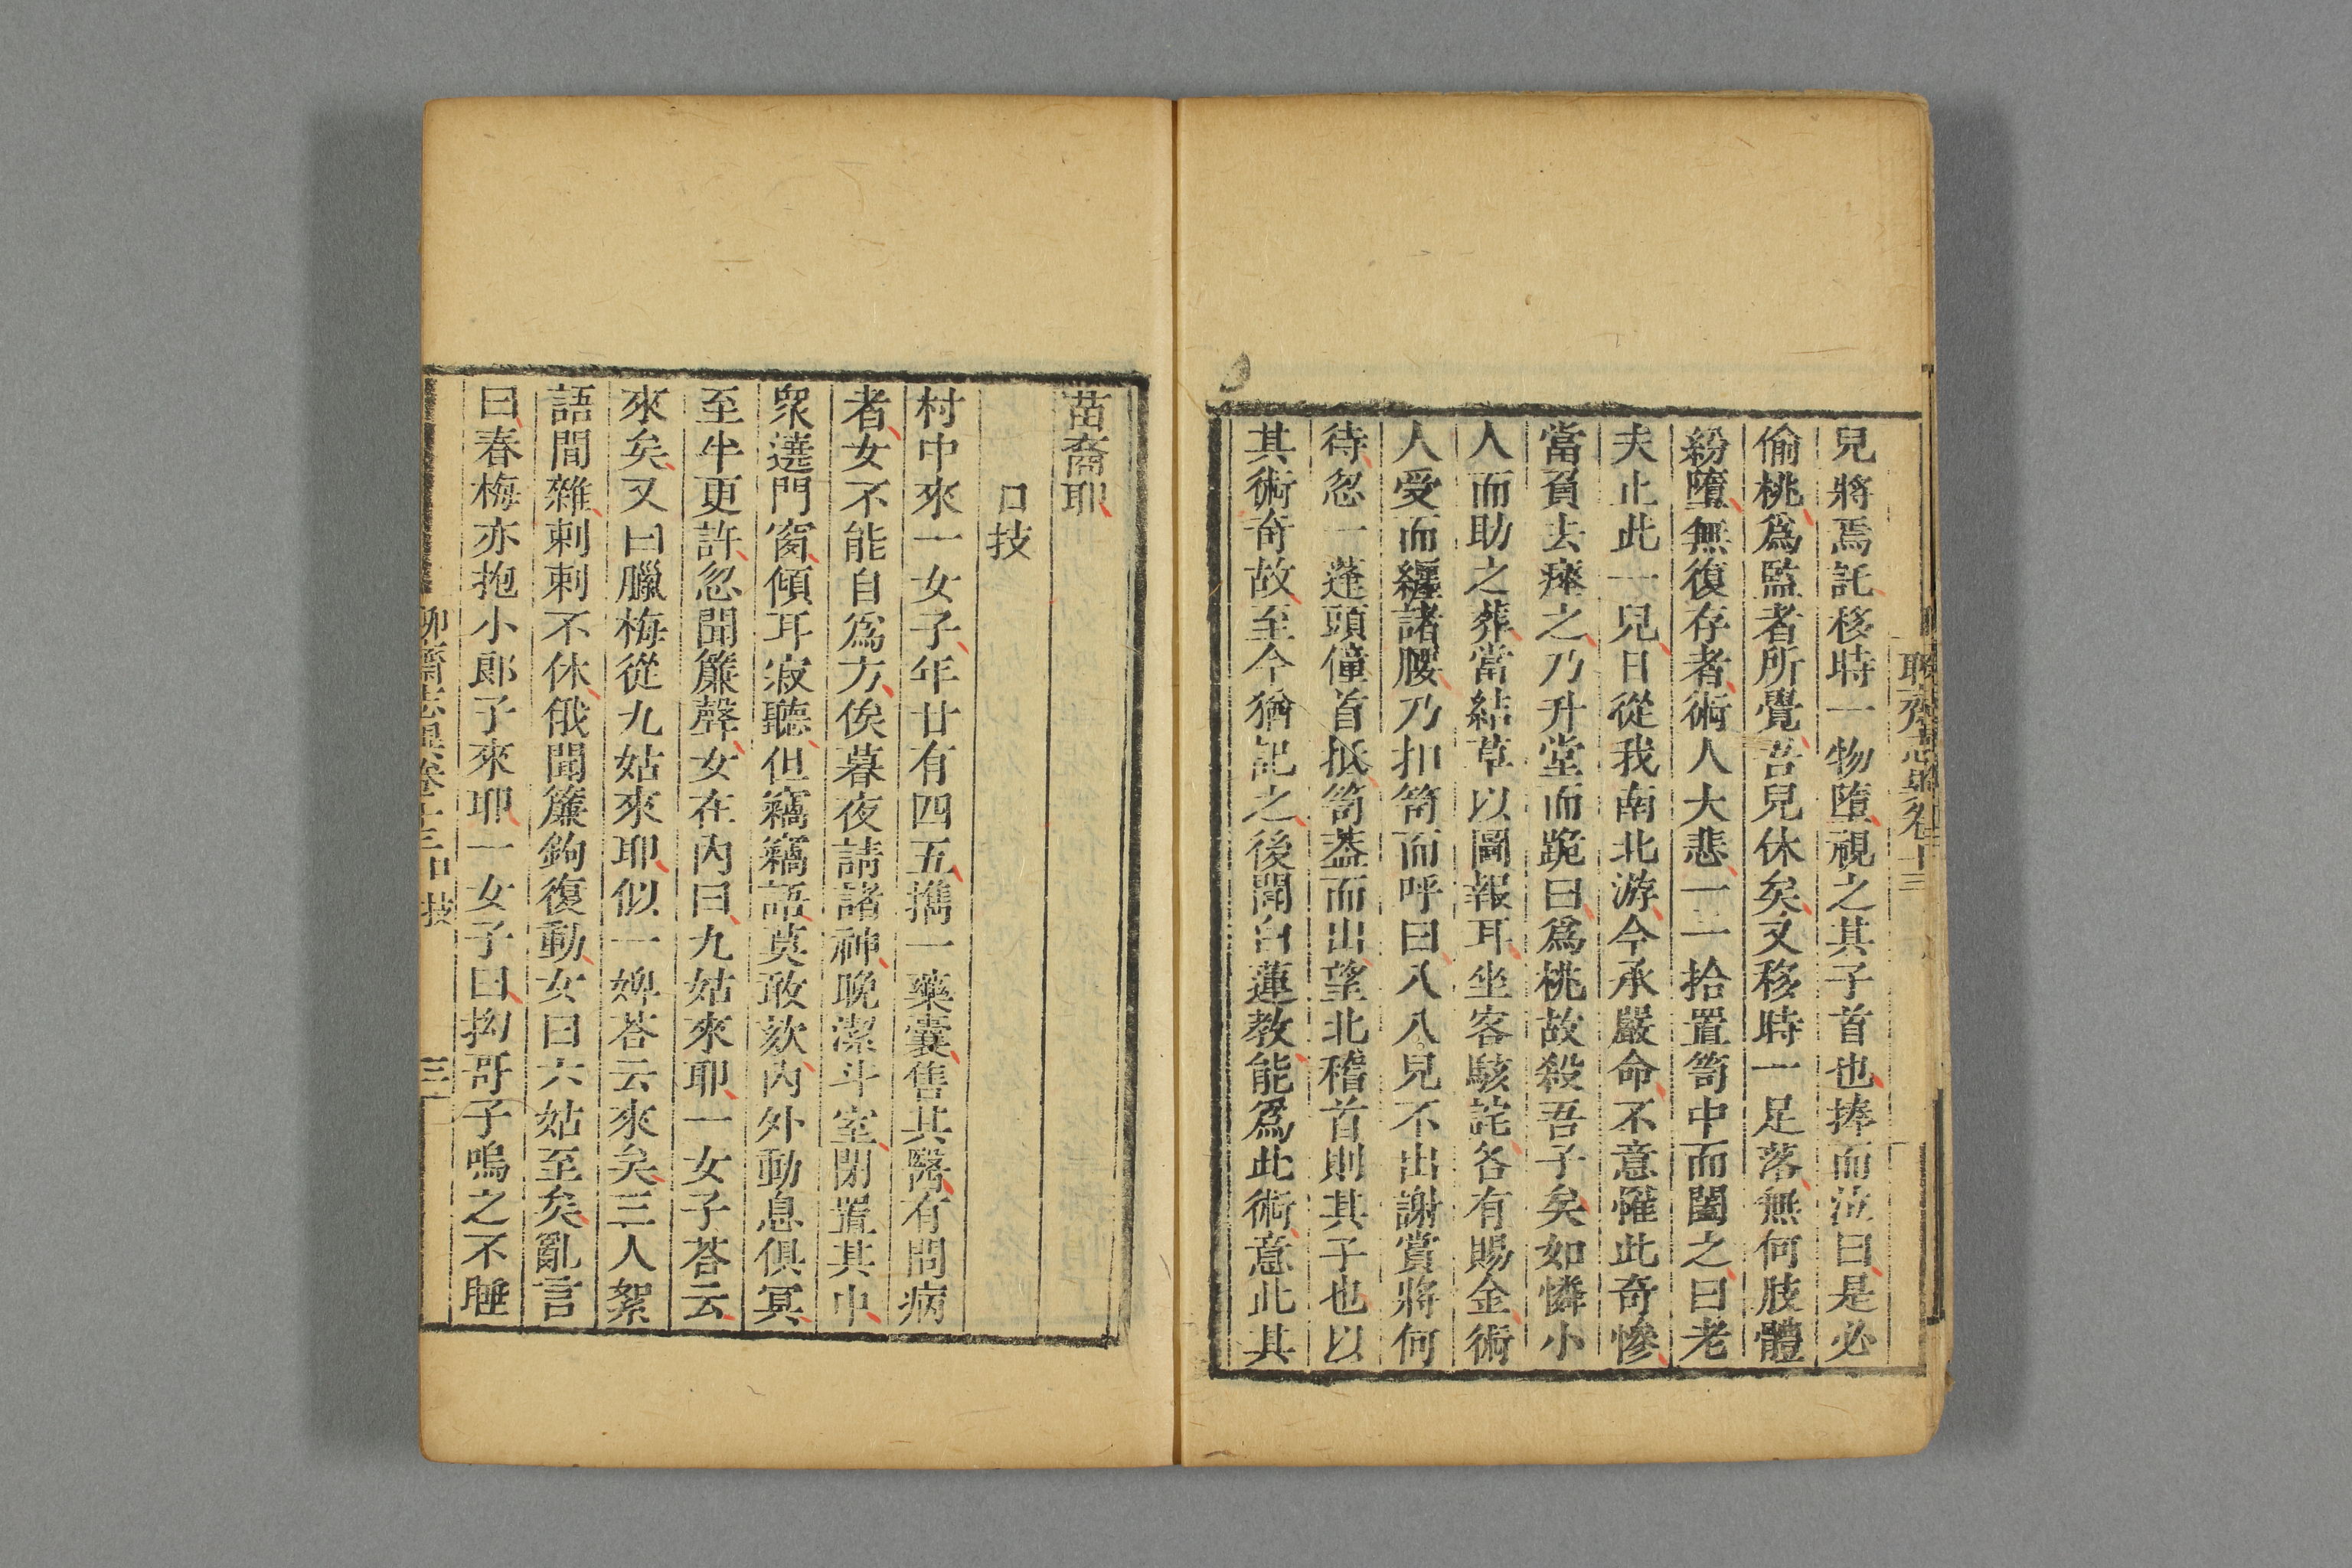 聊齋志異卷十三
兒將焉託移時一物墮視之其子首也捧而泣曰是必
偷桃爲監者所覺吾兒休矣又移時一足落無何肢體
紛墮無復存者術人大悲一一拾置笥中而闔之曰老
夫止此一兒日從我南北游今承嚴命不意罹此奇慘
當負去瘞之乃升堂而跪曰爲桃故殺吾子矣如憐小
人而助之葬當結草以圖報耳坐客駭詫各有賜金術
人受而纏諸腰乃扣笥而呼曰八八兒不出謝賞將何
待忽一蓬頭僮首抵笥葢而出望北稽首則其子也以
其術奇故至今猶記之後聞白蓮教能爲此術意此其
苗裔耶
口技
村中來一女子年廿有四五擕一藥囊售其醫有問病
者女不能自爲方俟暮夜請諸神晚潔斗室閉置其中
衆遶門窗傾耳寂聽但竊竊語莫敢欬内外動息俱冥
至半更許忽聞簾聲女在内曰九姑來耶一女子荅云
來矣又曰臘梅從九姑來耶似一婢荅云來矣三人絮
語間雜剌剌不休俄聞簾鉤復動女曰六姑至矣亂言
曰春梅亦抱小郎子來耶一女子曰拗哥子嗚之不睡
聊齋志異卷十三口技 三